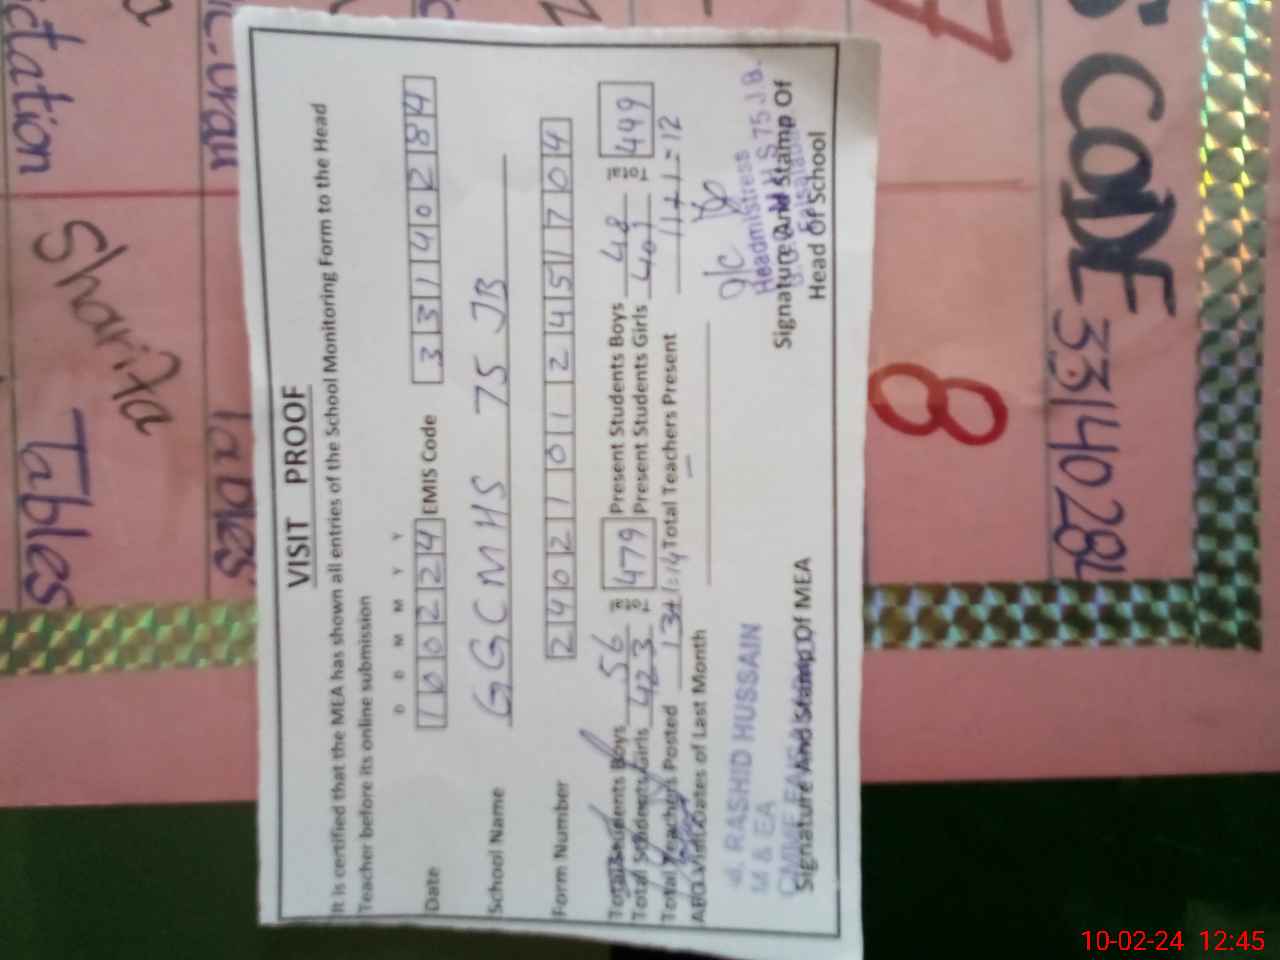 VISIT PROOF
It is certified that the MEA has shown all entries of the School Monitoring Form to the Head
Teacher before its online submission
D D M M Y Y
Date 100224 EMIS Code 33140284
School Name GGCMHS 75 JB
Form Number 2402101124517704
Total Students Boys 56 Total 479 Present Students Boys 48 Total 449
Total Students Girls 423 Present Students Girls 401
Total Teachers Posted 13+1=14 Total Teachers Present 11+1=12
AEO Visit Dates of Last Month –
RASHID HUSSAIN
M & EA
Signature And Stamp Of MEA
Headmistress
75 J.B.
Signature And Stamp Of
Head Of School
ctation
Sharifa
Tables
Tables
7
8
S CODE
33140284
10-02-24 12:45